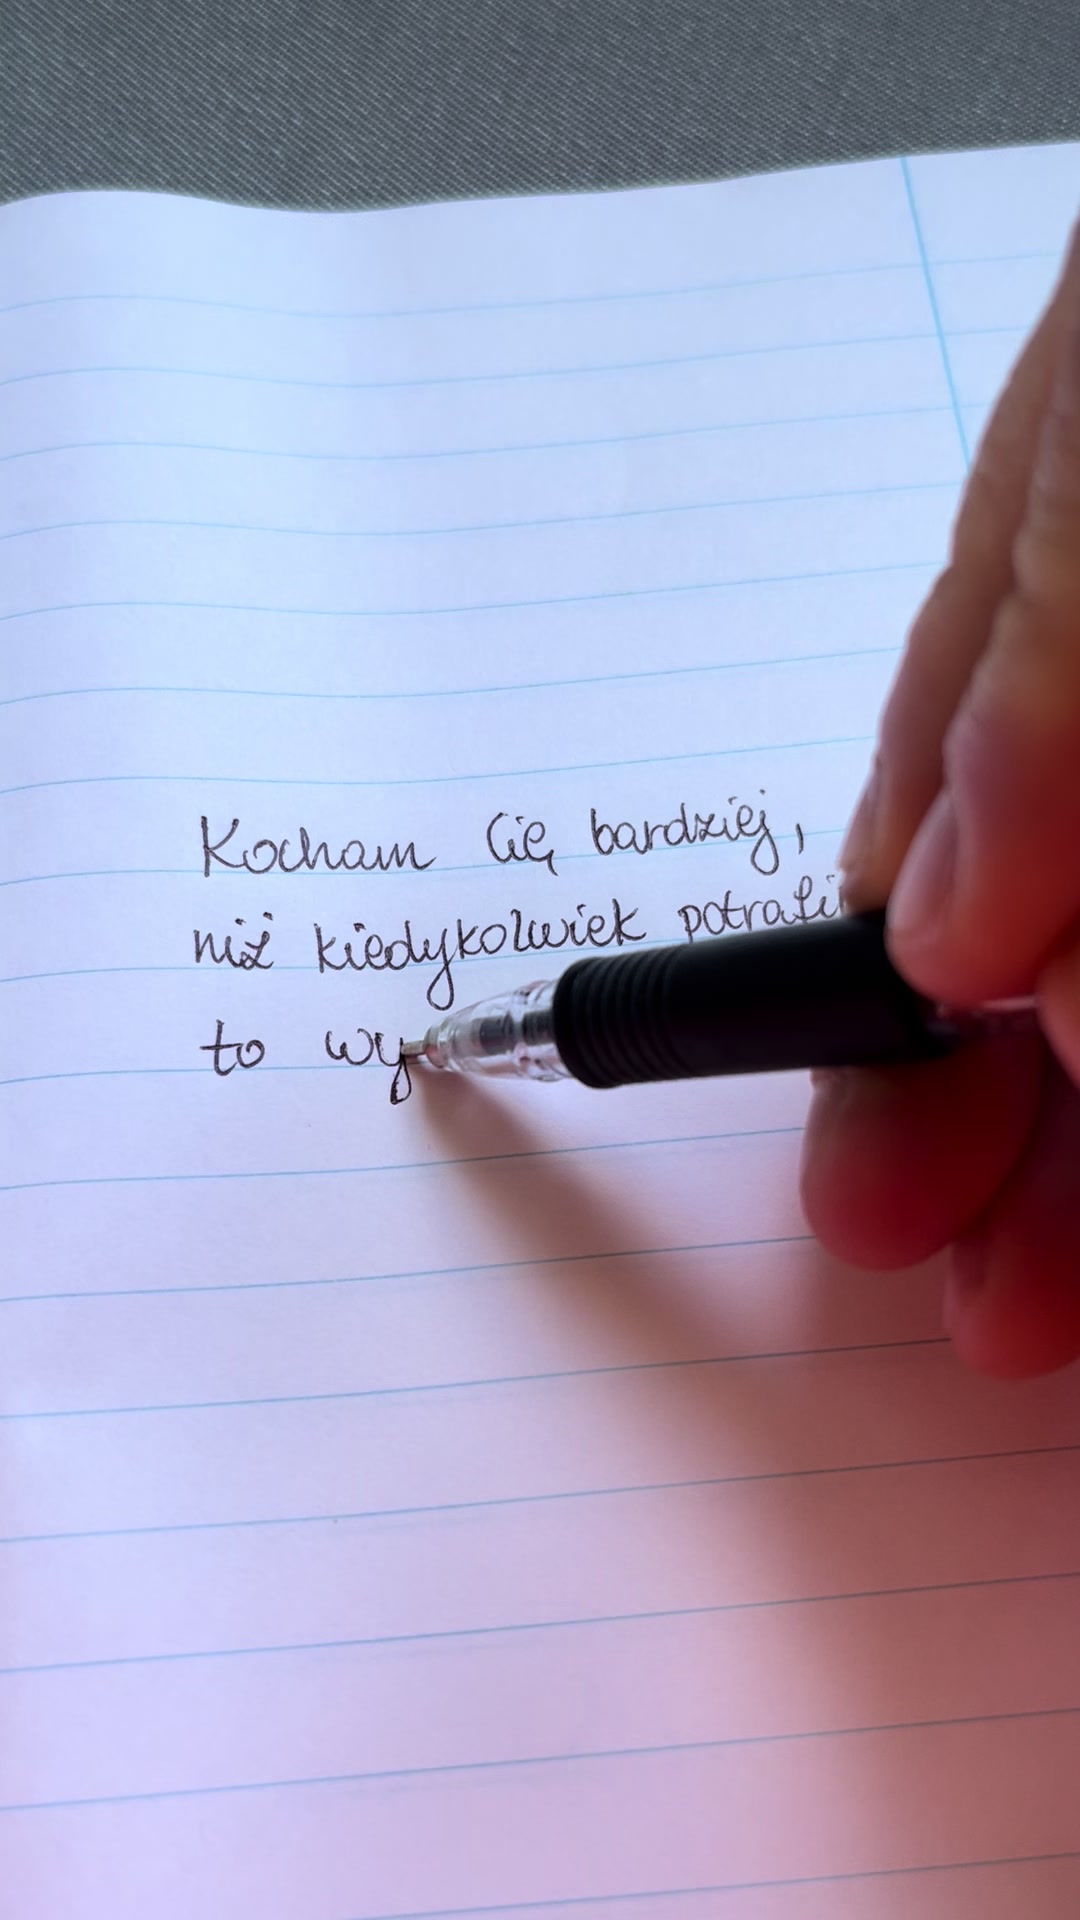 Kocham Cię bardziej,
niż kiedykolwiek
to wy